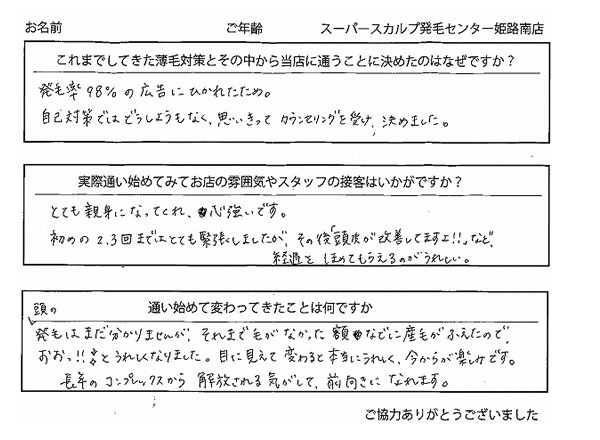 お名前 ご年齢 スーパースカルプ発毛センター姫路南店
これまでしてきた薄毛対策とその中から当店に通うことに決めたのはなぜですか?
発毛率98%の広告にひかれたため。
自己対策ではどうしようもなく、思いきって カウンセリングを受け、決めました。
実際通い始めてみてお店の雰囲気やスタッフの接客はいかがですか?
とても親身になってくれ、心強いです。
初めの2.3回まではとても緊張しましたが、その後「頭皮が改善してますよ!!」など、
経過を ほめてもらえるのがうれしい。
通い始めて変わってきたことは何ですか
頭の
発毛はまだ分かりませんが、それまで毛がなかった 額などに産毛がふえたので、
おおっ!!とうれしくなりました。目に見えて変わると本当にうれしく、今からが楽しみです。
長年のコンプレックスから 解放される気がして、前向きになれます。
ご協力ありがとうございました